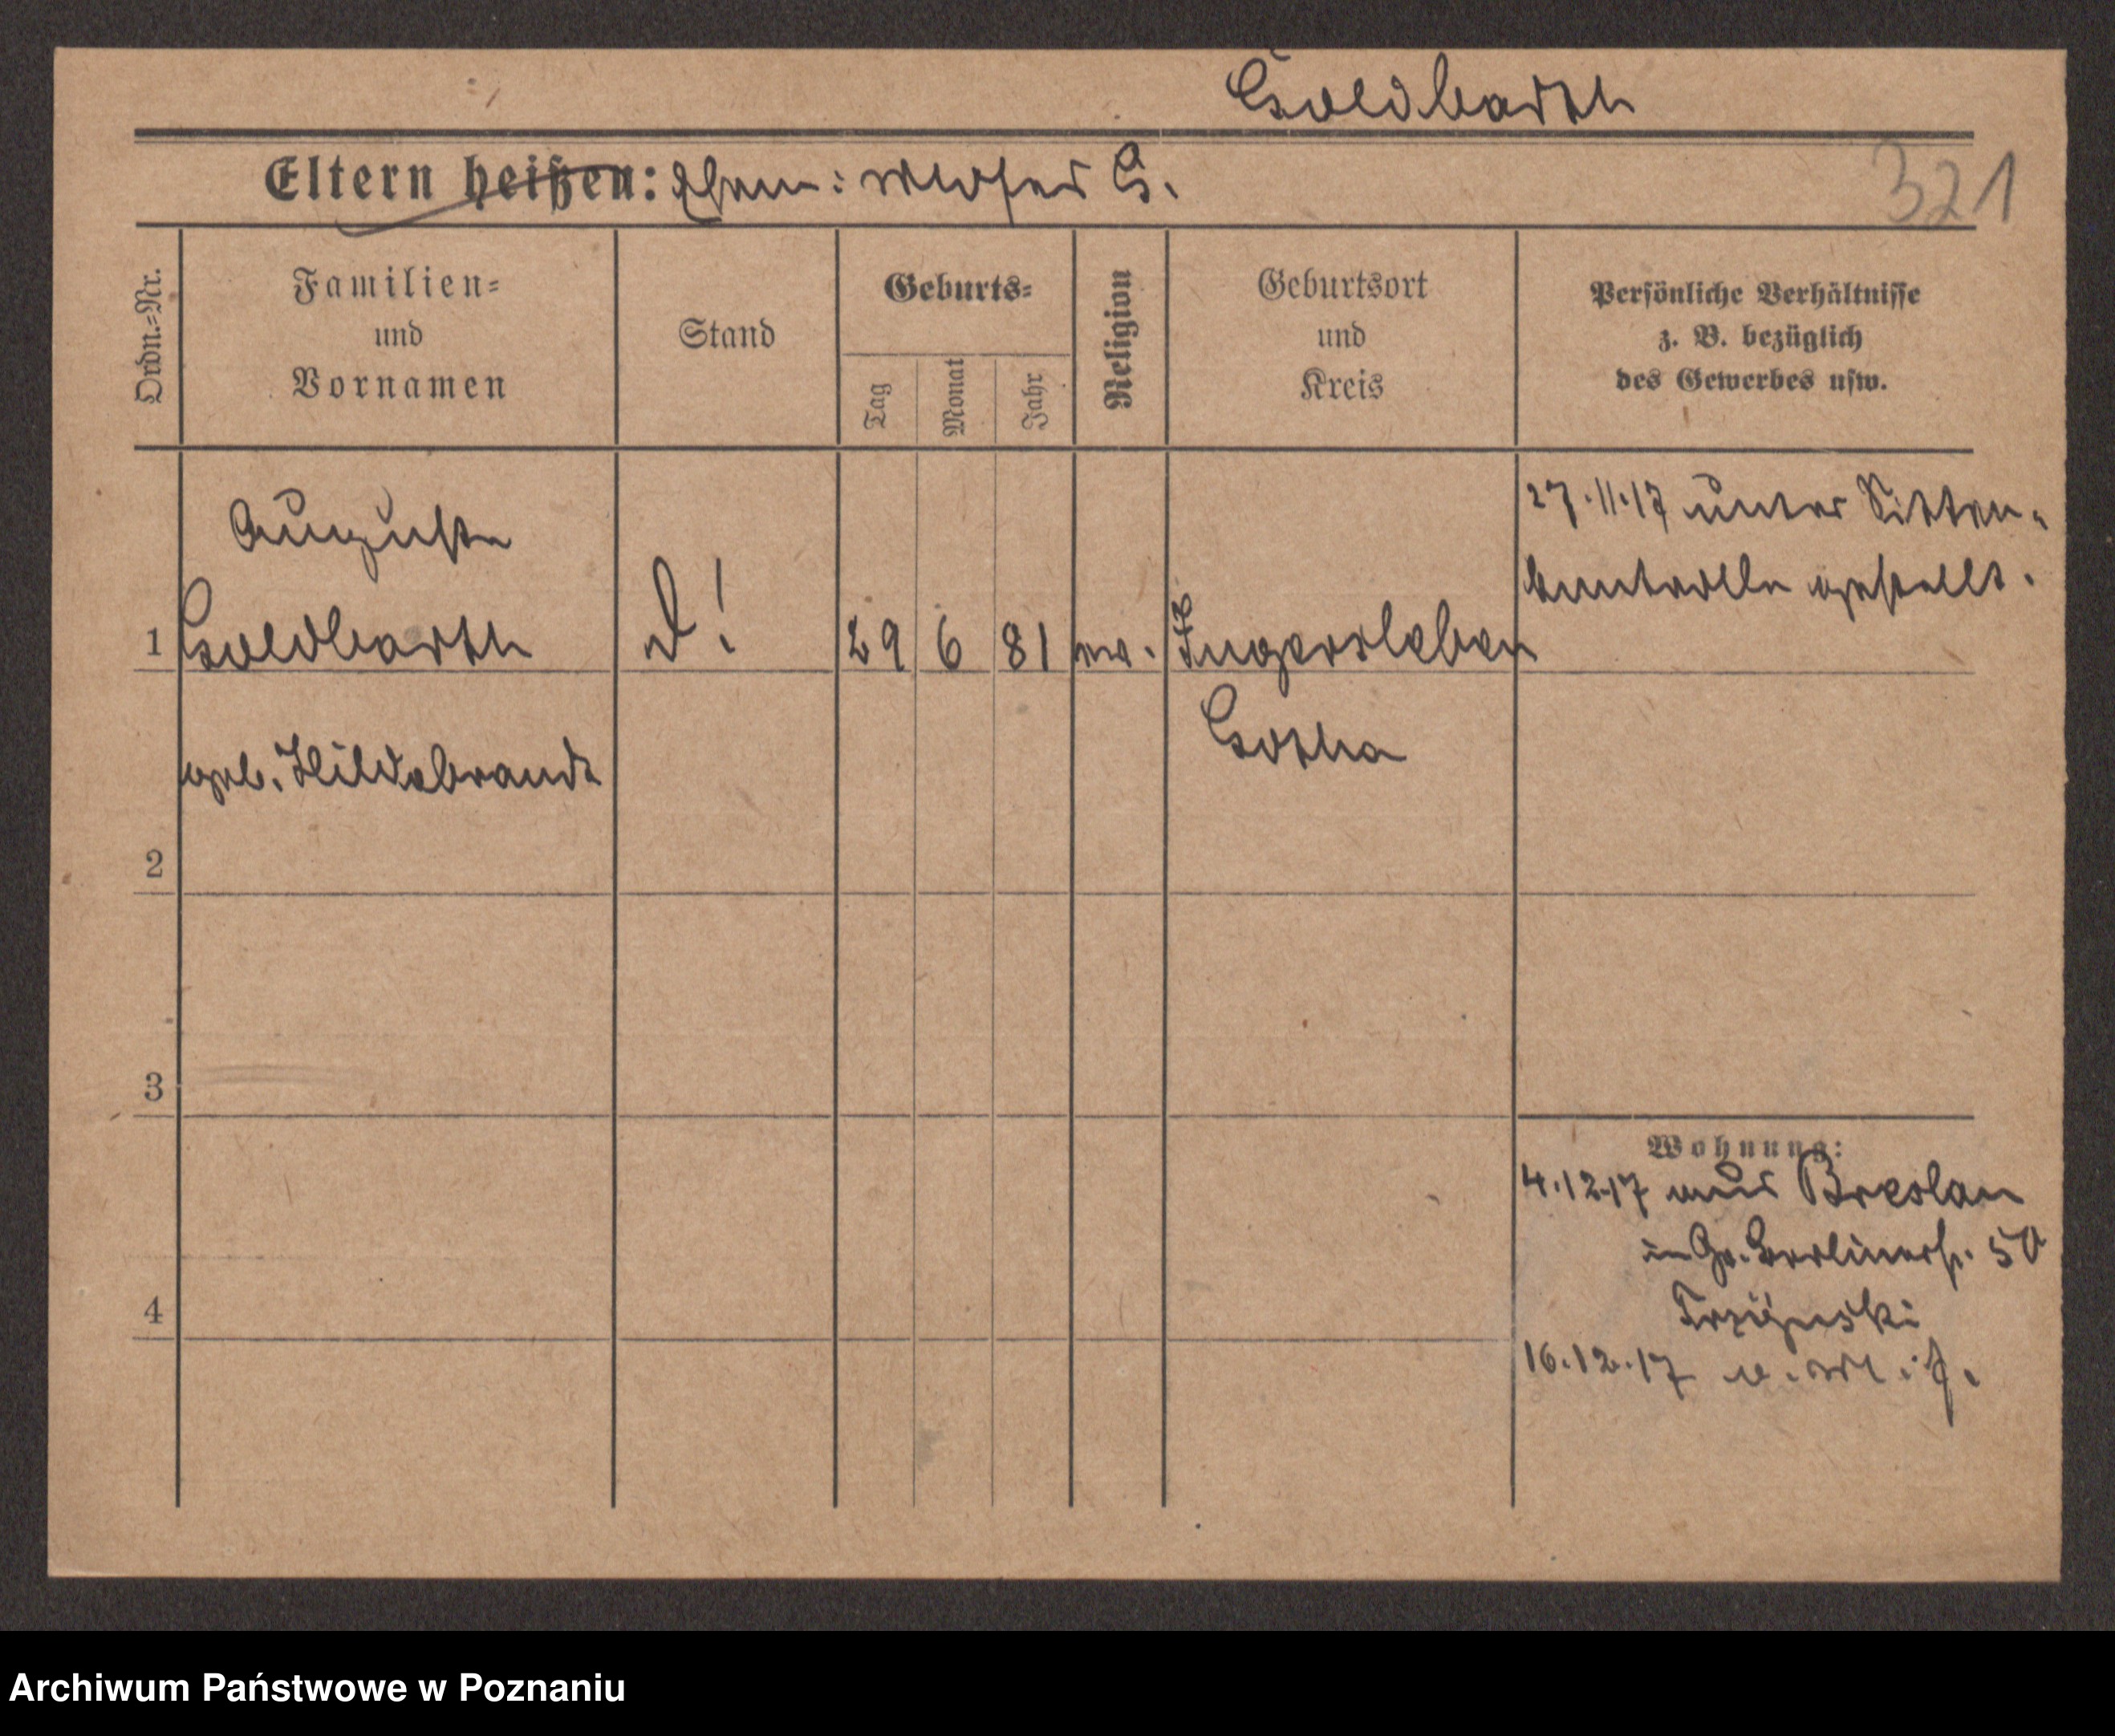 Goldbarth
Eltern heißen: Ehem: Moses G.
321
Ordn.=Nr.
Familien=
und
Vornamen
Stand
Geburts=
Tag
Monat
Jahr
Religion
Geburtsort
und
Kreis
Persönliche Verhältnisse
z. B. bezüglich
des Gewerbes usw.
27.11.17 unter Sitten-
kontrolle gestellt.
Auguste
1 Goldbarth
29 6 81
Ingersleben
geb. Hildebrandt
Gotha
2
3
4
Wohnung:
4.12.17 aus Breslau
in Gr. Berlinerstr. 50
16.12.17
Archiwum Państwowe w Poznaniu